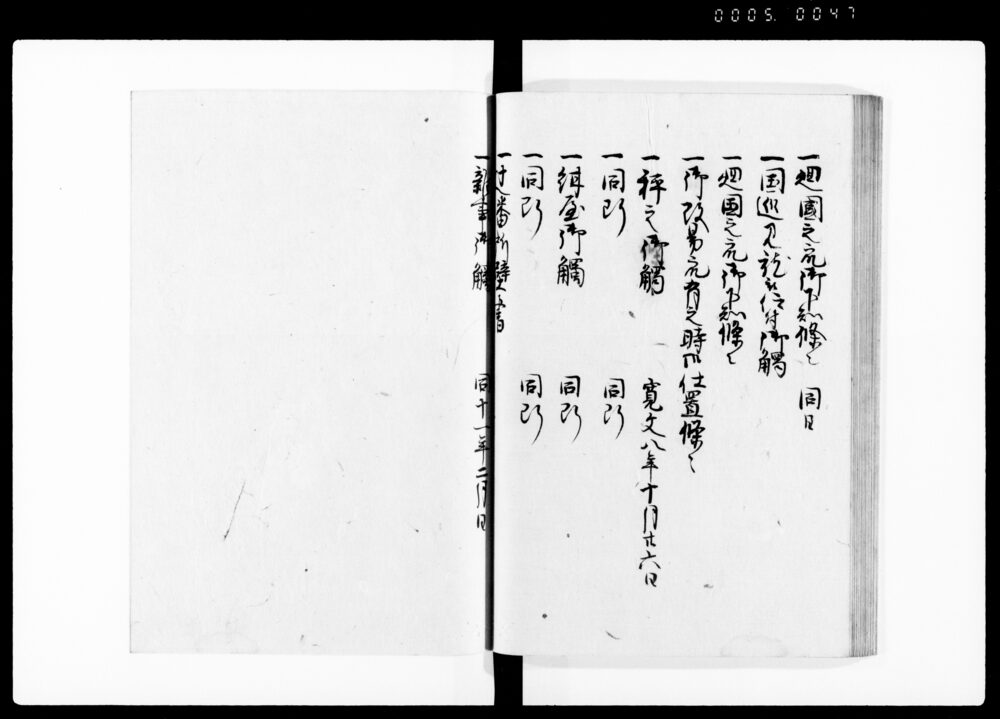 0005. 0047
一廻國之衆御下知條々 同日
一国廻見就被仰付御觸
一廻国之衆御下知條々
一御改易衆有之時御仕置條々
一秤之御觸 寛文八年十月廿六日
一同断 同断
一絹屋御觸 同断
一同断 同断
番所壁書
一新金御觸 同十一年二月日